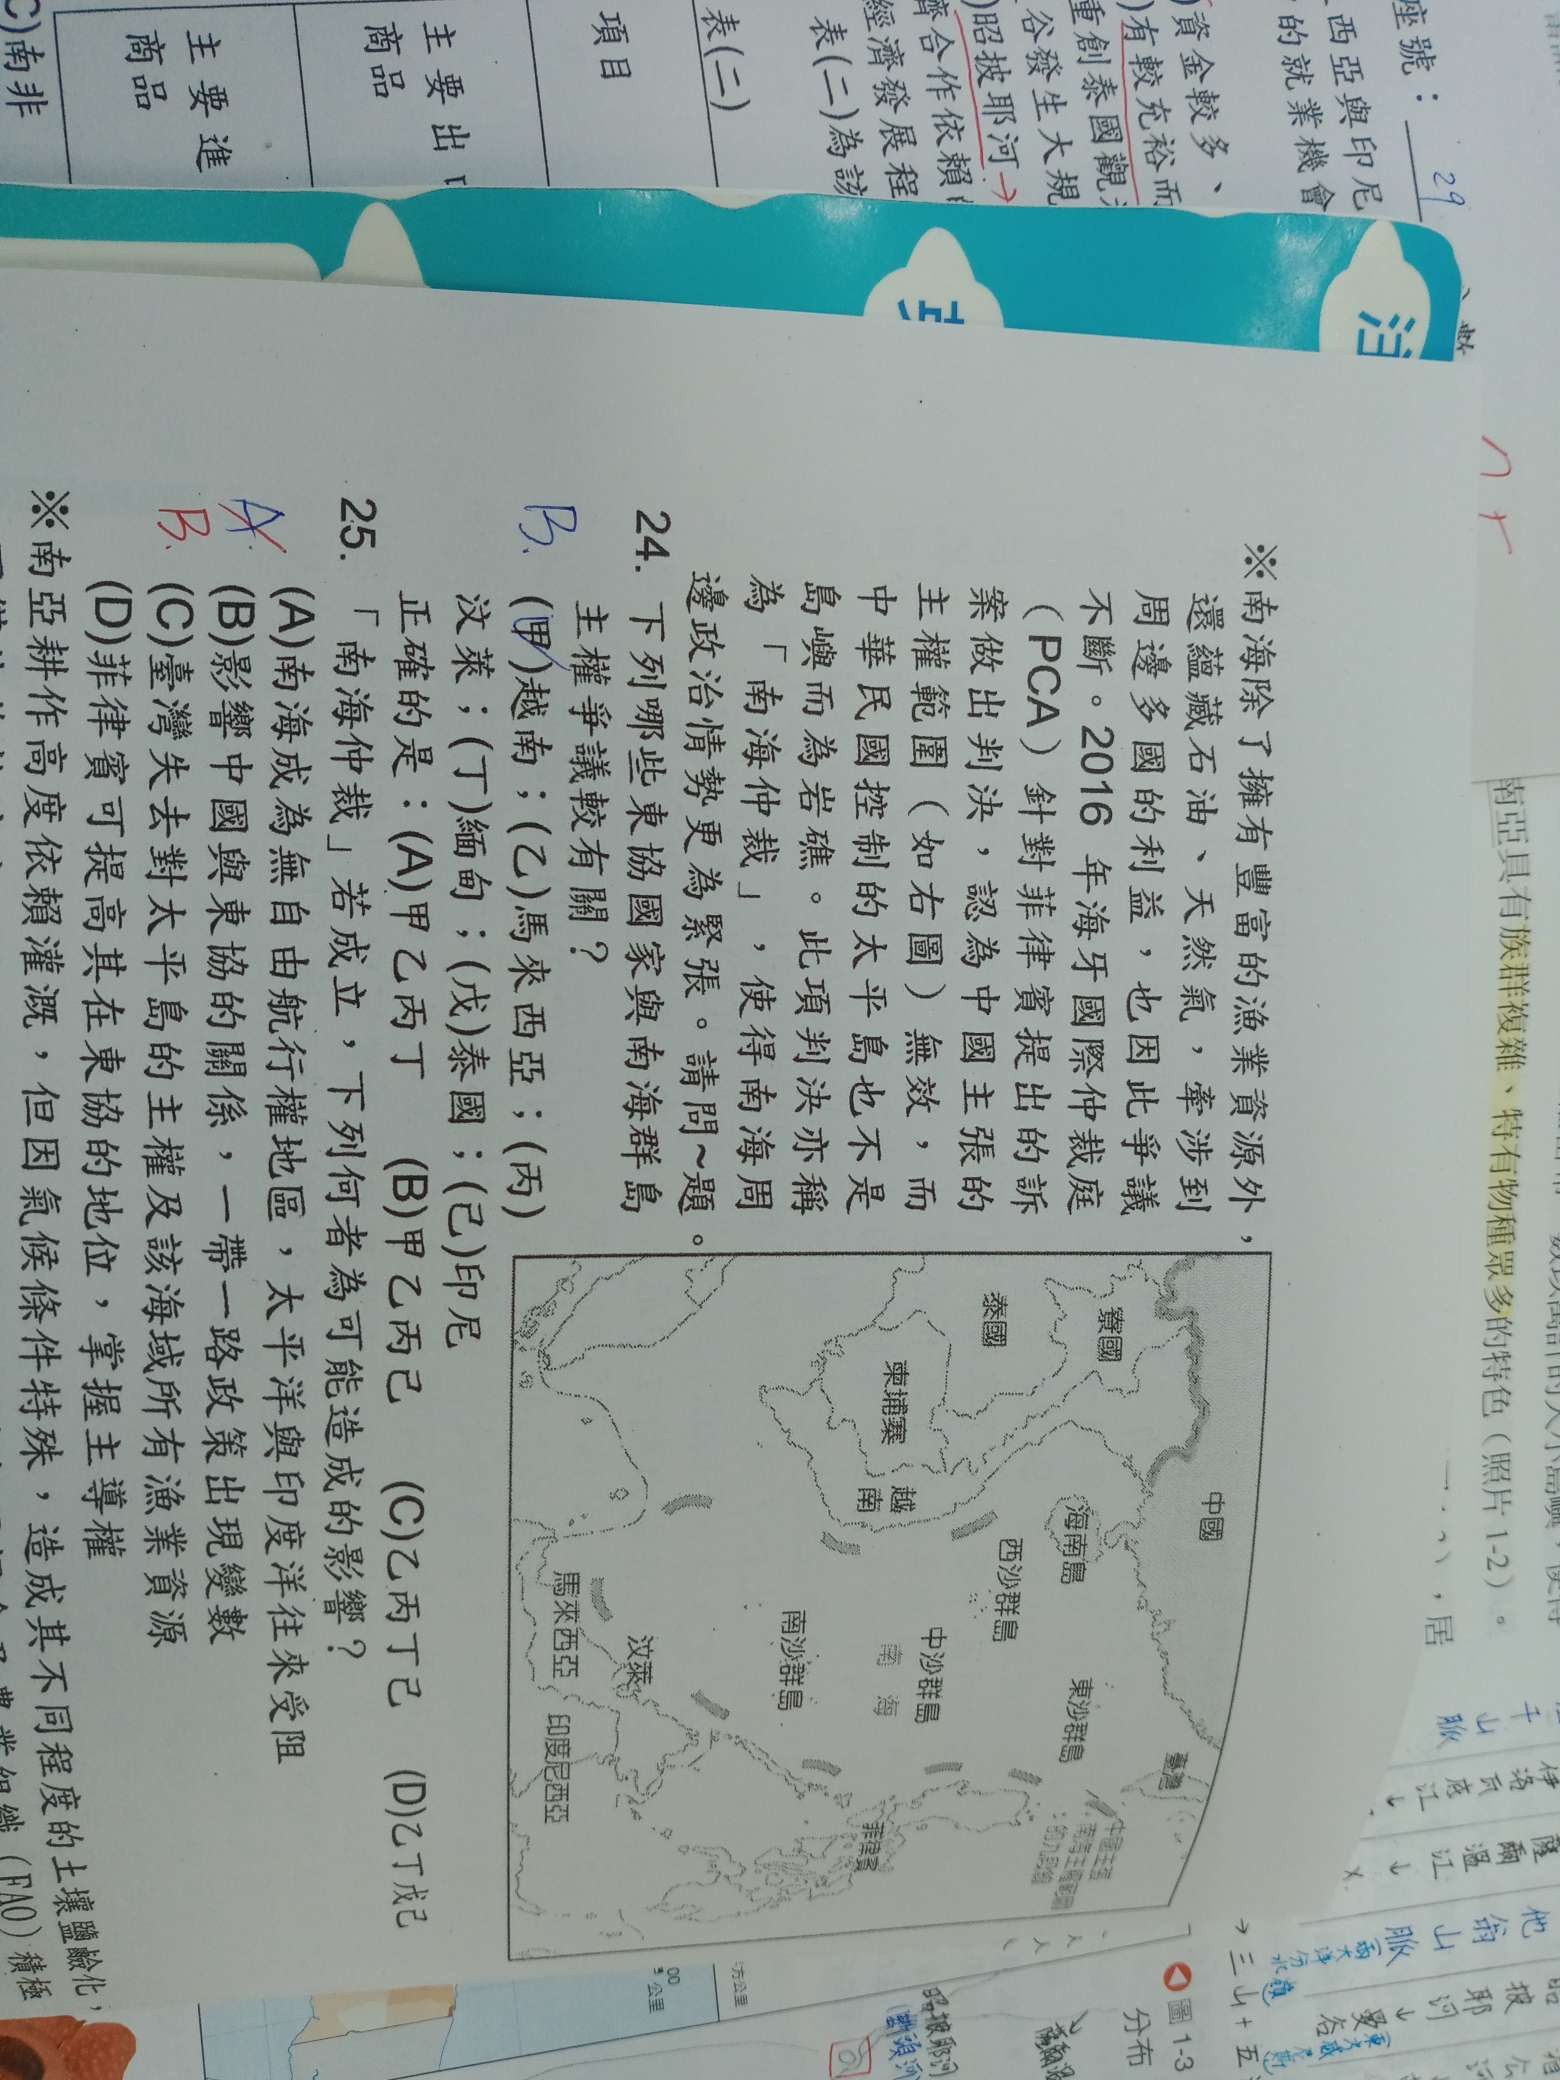 座號：29
西亞與印尼
的就業機會
資金較多、
有較充裕而
重創泰國觀
谷發生大規
昭披耶河→
濟合作依賴
經濟發展程
表(二)為該
表(二)
項目
主要出
商品
主要進
商品
C)南非
※南海除了擁有豐富的漁業資源外，
還蘊藏石油、天然氣，牽涉到
周邊多國的利益，也因此爭議
不斷。2016 年海牙國際仲裁庭
（PCA）針對菲律賓提出的訴
案做出判決，認為中國主張的
主權範圍（如右圖）無效，而
中華民國控制的太平島也不是
島嶼而為岩礁。此項判決亦稱
為「南海仲裁」，使得南海周
邊政治情勢更為緊張。請問~題。
24. 下列哪些東協國家與南海群島
主權爭議較有關？
B. (甲)越南；(乙)馬來西亞；(丙)
汶萊；(丁)緬甸；(戊)泰國；(己)印尼
正確的是：(A)甲乙丙丁 (B)甲乙丙己 (C)乙丙丁己 (D)乙丁戊己
25. 「南海仲裁」若成立，下列何者為可能造成的影響？
(A)南海成為無自由航行權地區，太平洋與印度洋往來受阻
A. (B)影響中國與東協的關係，一帶一路政策出現變數
B. (C)臺灣失去對太平島的主權及該海域所有漁業資源
(D)菲律賓可提高其在東協的地位，掌握主導權
※南亞耕作高度依賴灌溉，但因氣候條件特殊，造成其不同程度的土壤鹽鹼化，
農業組織（FAO）積極
中國
寮國
泰國
柬埔寨
越南
海南島
西沙群島
中沙群島
南海
東沙群島
南沙群島
臺灣
菲律賓
汶萊
馬來西亞
印度尼西亞
南亞具有族群複雜、特有物種眾多的特色（照片1-2）。
，居
圖 1-3
分布
昭披耶河
三山+五
他翁山脈
薩爾溫江
伊洛瓦底江
00
公里
方公里